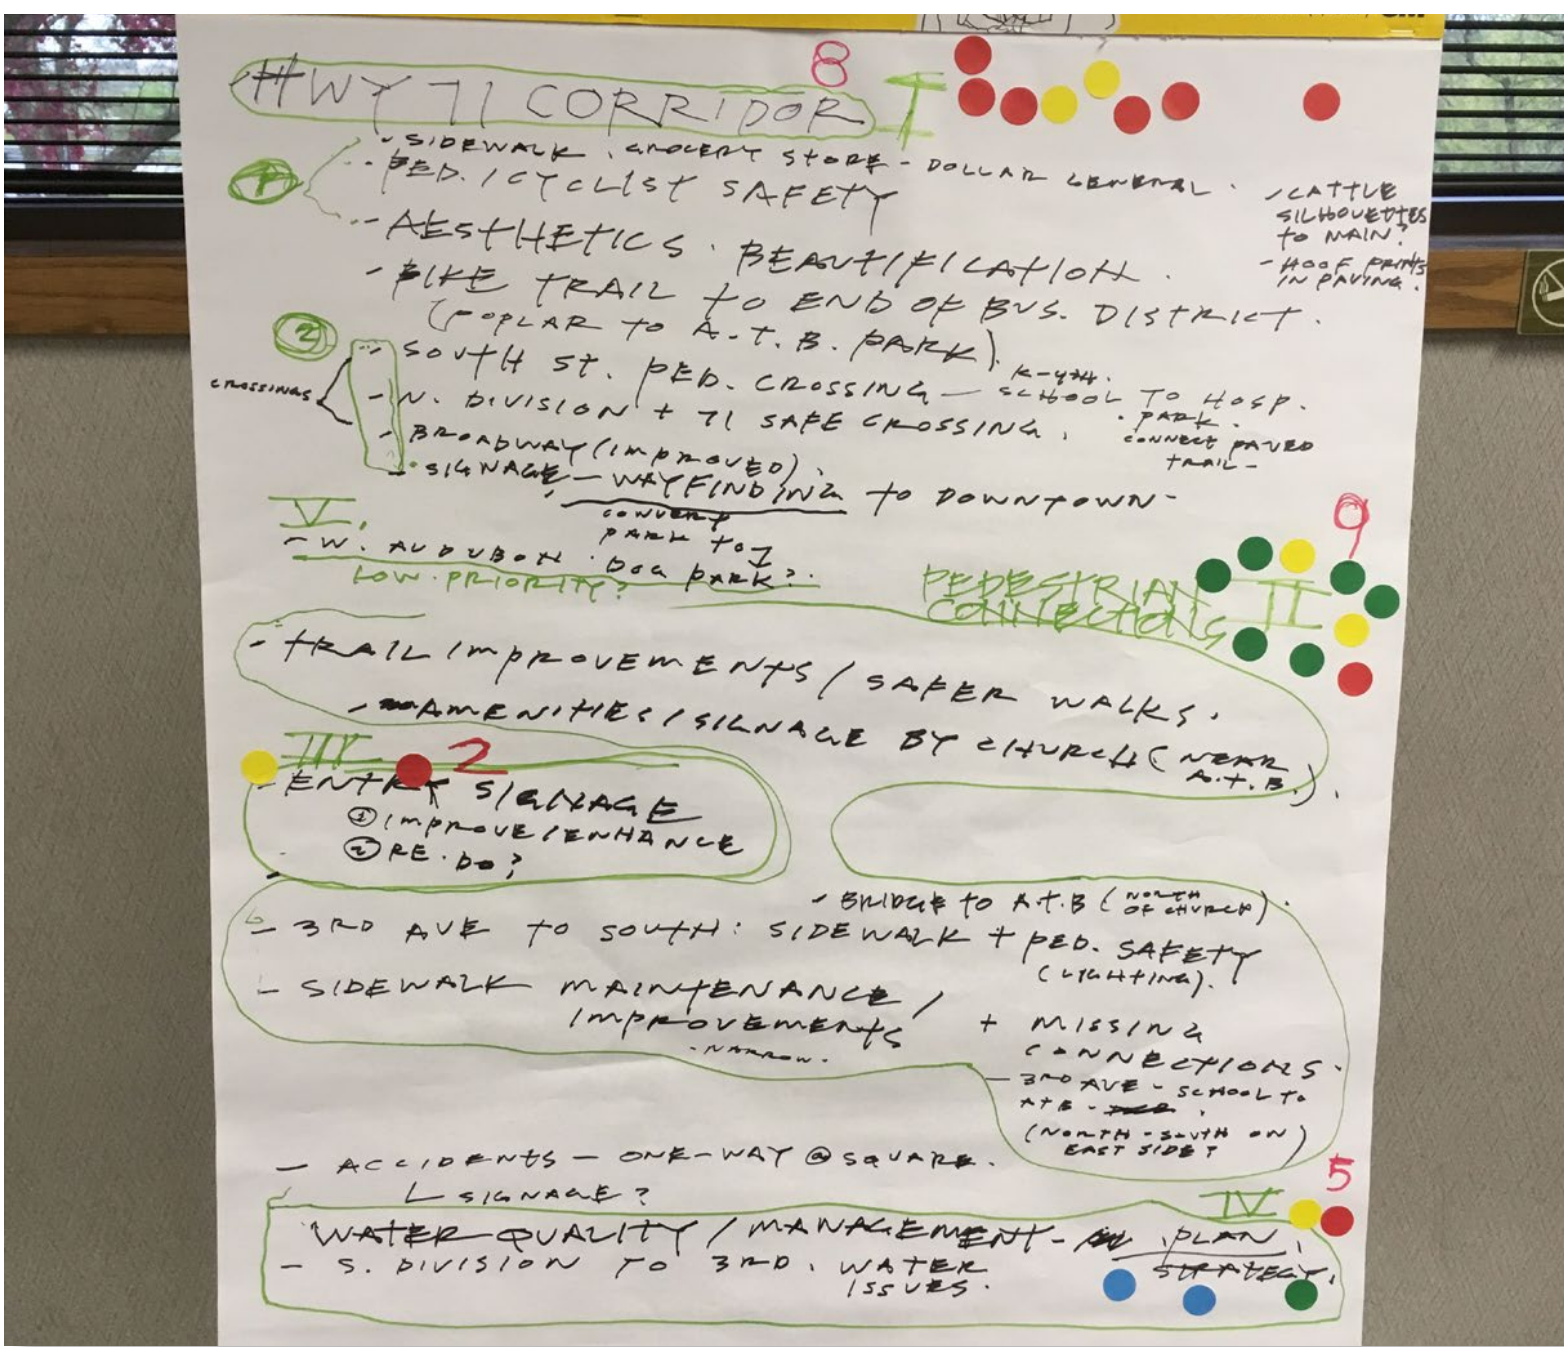 8
HWY 71 CORRIDOR I
- SIDEWALK . GROCERY STORE - DOLLAR GENERAL .
1
- PED. / CYCLIST SAFETY
- CATTLE
SILHOUETTES
TO MAIN?
- HOOF PRINTS
IN PAVING.
- AESTHETICS . BEAUTIFICATION .
- BIKE TRAIL TO END OF BUS. DISTRICT.
(POPLAR TO A.T.B. PARK).
2
CROSSINGS
- SOUTH ST. PED. CROSSING - K-4TH. SCHOOL TO HOSP.
- N. DIVISION + 71 SAFE CROSSING .
. PARK .
CONNECT PAVED
TRAIL -
- BROADWAY (IMPROVED).
- SIGNAGE - WAYFINDING TO DOWNTOWN -
V.
CONVERT
PARK TO
- W. AUDUBON . DOG PARK? .
LOW PRIORITY?
9
PEDESTRIAN II
CONNECTIONS
- TRAIL IMPROVEMENTS / SAFER WALKS .
- AMENITIES / SIGNAGE BY CHURCH (NEAR
A.T.B.).
III 2
- ENTRY SIGNAGE
① IMPROVE / ENHANCE
② RE.DO?
- BRIDGE TO A.T.B (NORTH
OF CHURCH).
- 3RD AVE TO SOUTH: SIDEWALK + PED. SAFETY
(LIGHTING).
- SIDEWALK MAINTENANCE /
IMPROVEMENTS
- NARROW -
+ MISSING
CONNECTIONS .
- 3RD AVE - SCHOOL TO
ATB -
(NORTH - SOUTH ON)
EAST SIDE?
- ACCIDENTS - ONE-WAY @ SQUARE .
SIGNAGE?
5
IV
WATER QUALITY / MANAGEMENT - PLAN,
STRATEGY.
- S. DIVISION TO 3RD . WATER
ISSUES.